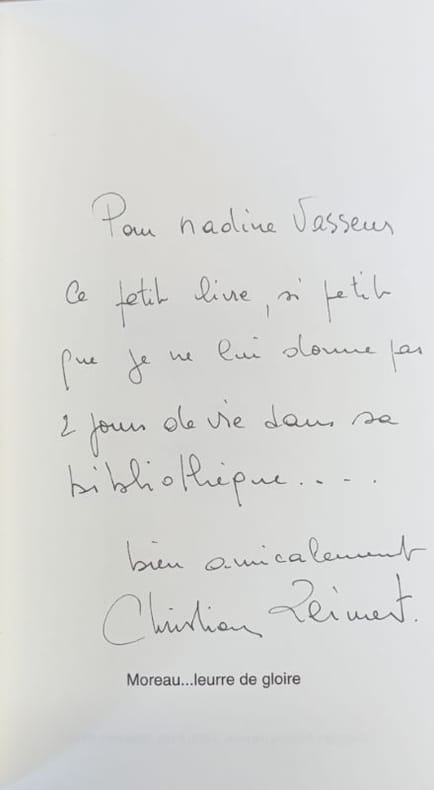 Pour nadine Vasseur
Ce petit livre, si petit
que je ne lui donne pas
2 jours de vie dans sa
bibliothèque.....
bien amicalement
Christian
Moreau...leurre de gloire